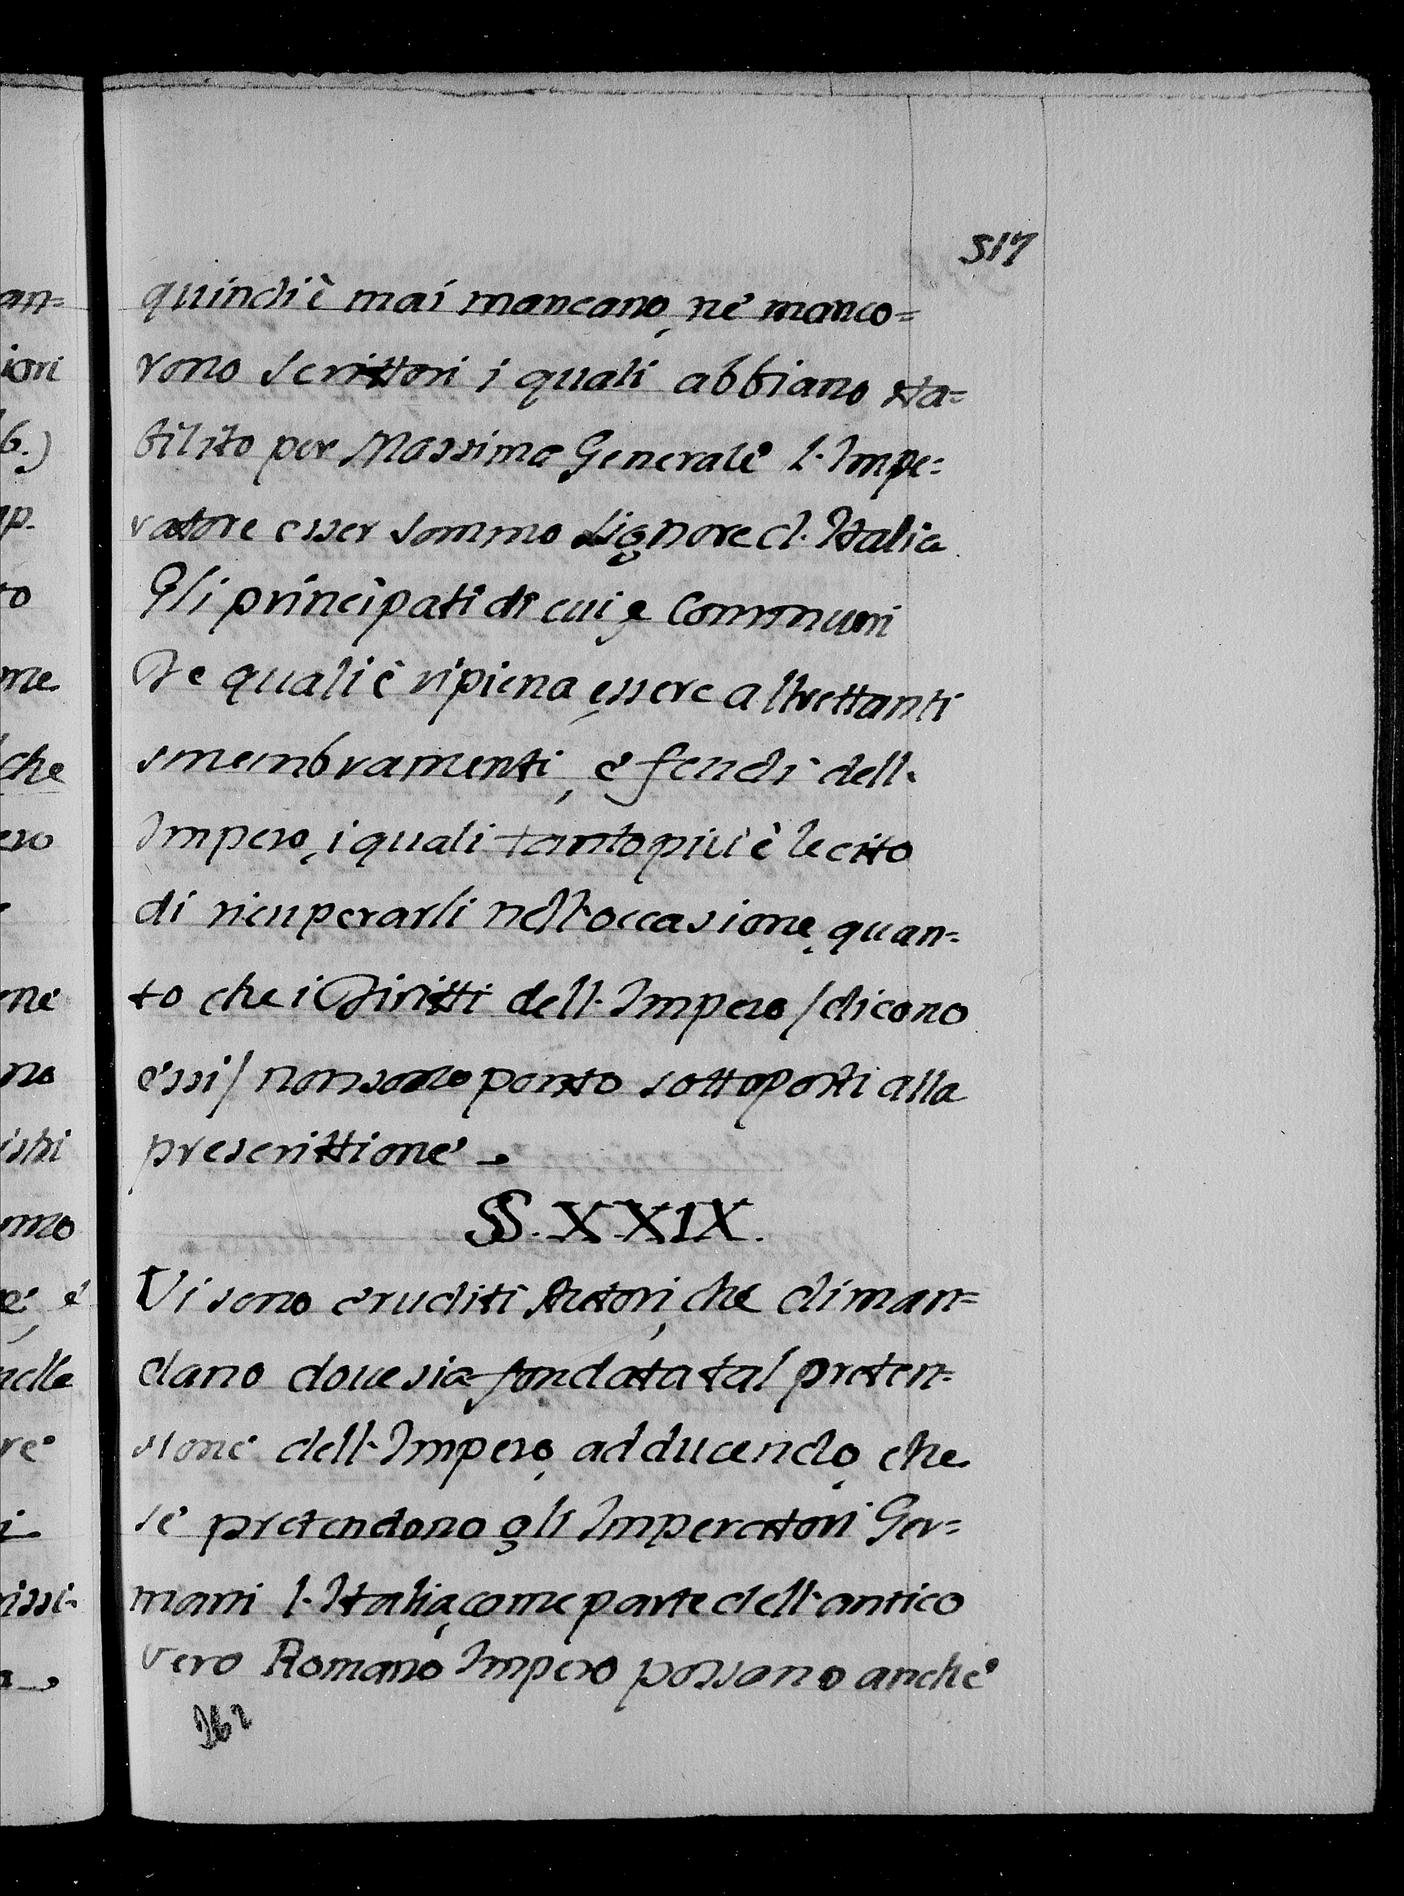 517
quindi è mai mancano, nè manco=
rono scrittori i quali abbiano sta=
bilito per Massima Generale L'Impe=
ratore esser sommo Signore d'Italia
Gli principati di cui, e Communi
De quali è ripiena, essere altrettanti
smembramenti, e feudi dell'
Impero, i quali tanto più è lecito
di ricuperarli nell'occasione, quan=
to che i Diritti dell'Impero /dicono
essi/ non sono ponto sottoposti alla
prescrittione.
§. XXIX.
Vi sono eruditi Autori, che diman=
dano doue sia fondata tal preten=
sione dell'Impero, adducendo, che
se pretendono gli Imperatori Ger=
mani l'Italia, come parte dell'antico
vero Romano Impero possano anche
262